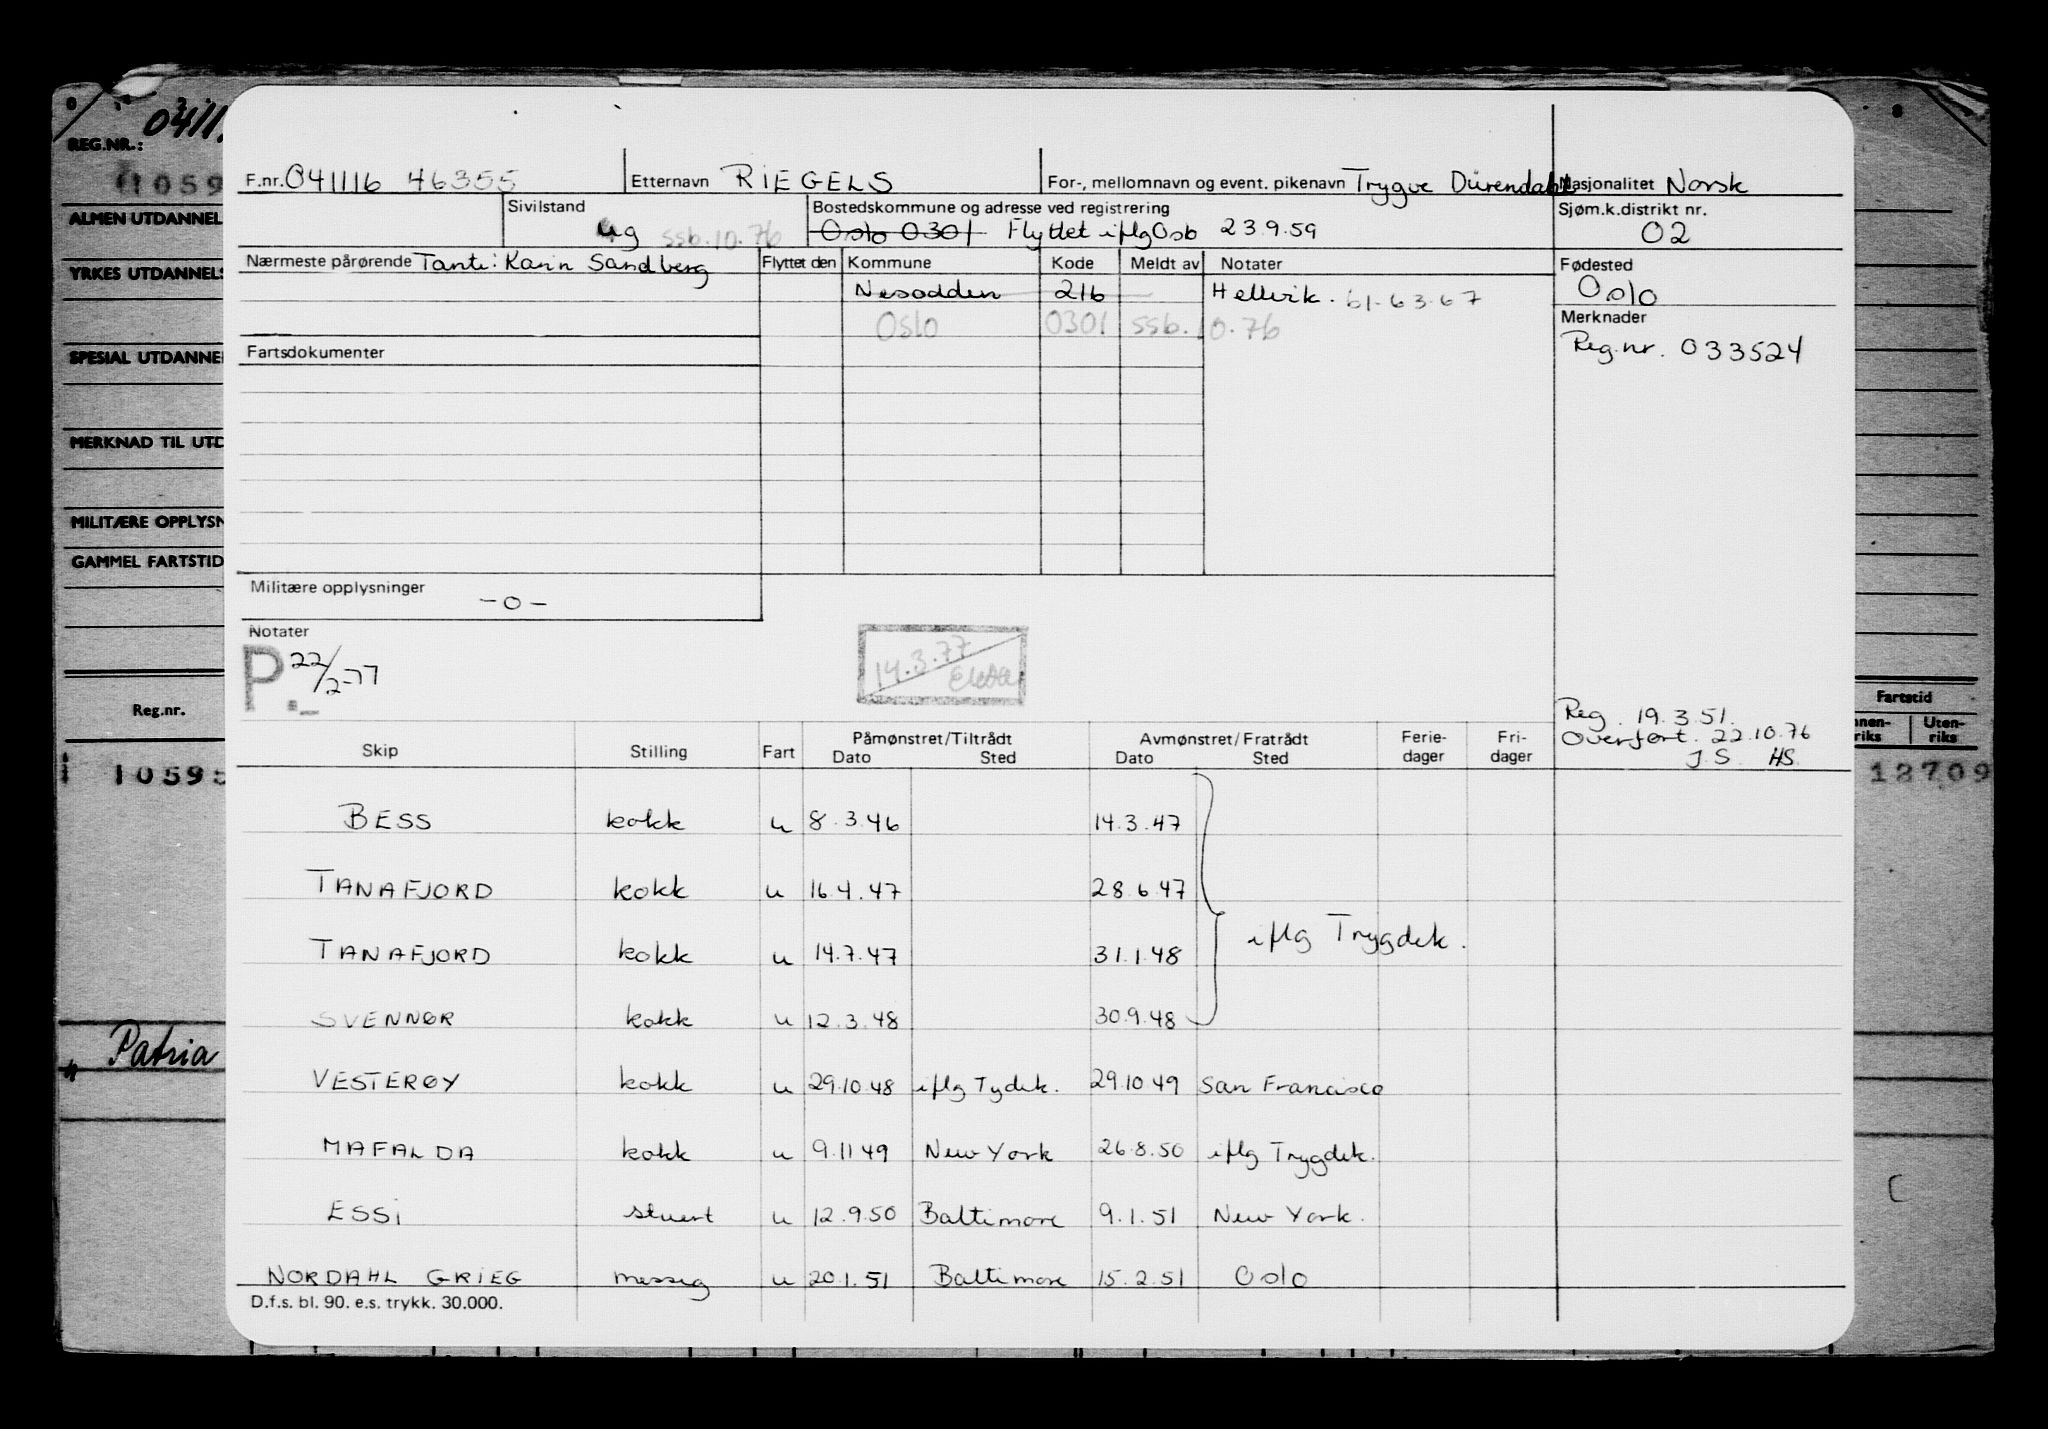 REG.NR.:
F.nr. 041116 46355 Etternavn RIEGELS For-, mellomnavn og event. pikenavn Trygve Dürendahl Nasjonalitet Norsk
Sivilstand ug ssb.10.76 Bostedskommune og adresse ved registrering Oslo 0301 Flyttet iflg Osb 23.9.59 Sjøm.k.distrikt nr. 02
Nærmeste pårørende Tante: Karin Sandberg Flyttet den Kommune Kode Meldt av Notater Fødested
Nesodden 216 Hellvik. 61-63-67 Oslo
Oslo 0301 ssb.10.76 Merknader
Fartsdokumenter Reg.nr. 033524
Militære opplysninger -o-
Notater
P. 22/2-77
14.3.77
Reg. 19.3.51.
Overført. 22.10.76
J.S. HS.
Skip Stilling Fart Påmønstret/Tiltrådt Dato Sted Avmønstret/Fratrådt Dato Sted Ferie-dager Fri-dager
BESS kokk u 8.3.46 14.3.47
TANAFJORD kokk u 16.4.47 28.6.47
iflg Trygdek.
TANAFJORD kokk u 14.7.47 31.1.48
SVENNØR kokk u 12.3.48 30.9.48
VESTERØY kokk u 29.10.48 iflg Tydek. 29.10.49 San Francisco
MAFALDA kokk u 9.11.49 New York 26.8.50 iflg Trygdek.
ESSI stuert u 12.9.50 Baltimore 9.1.51 New York.
NORDAHL GRIEG messeg u 20.1.51 Baltimore 15.2.51 Oslo
D.f.s. bl. 90. e.s. trykk. 30.000.
0411
1059
ALMEN UTDANNEL
YRKES UTDANNELS
SPESIAL UTDANNE
MERKNAD TIL UTD
MILITÆRE OPPLYSN
GAMMEL FARTSTID
Reg.nr.
10595
Patria
Fartstid
nnen-riks Uten-riks
12709